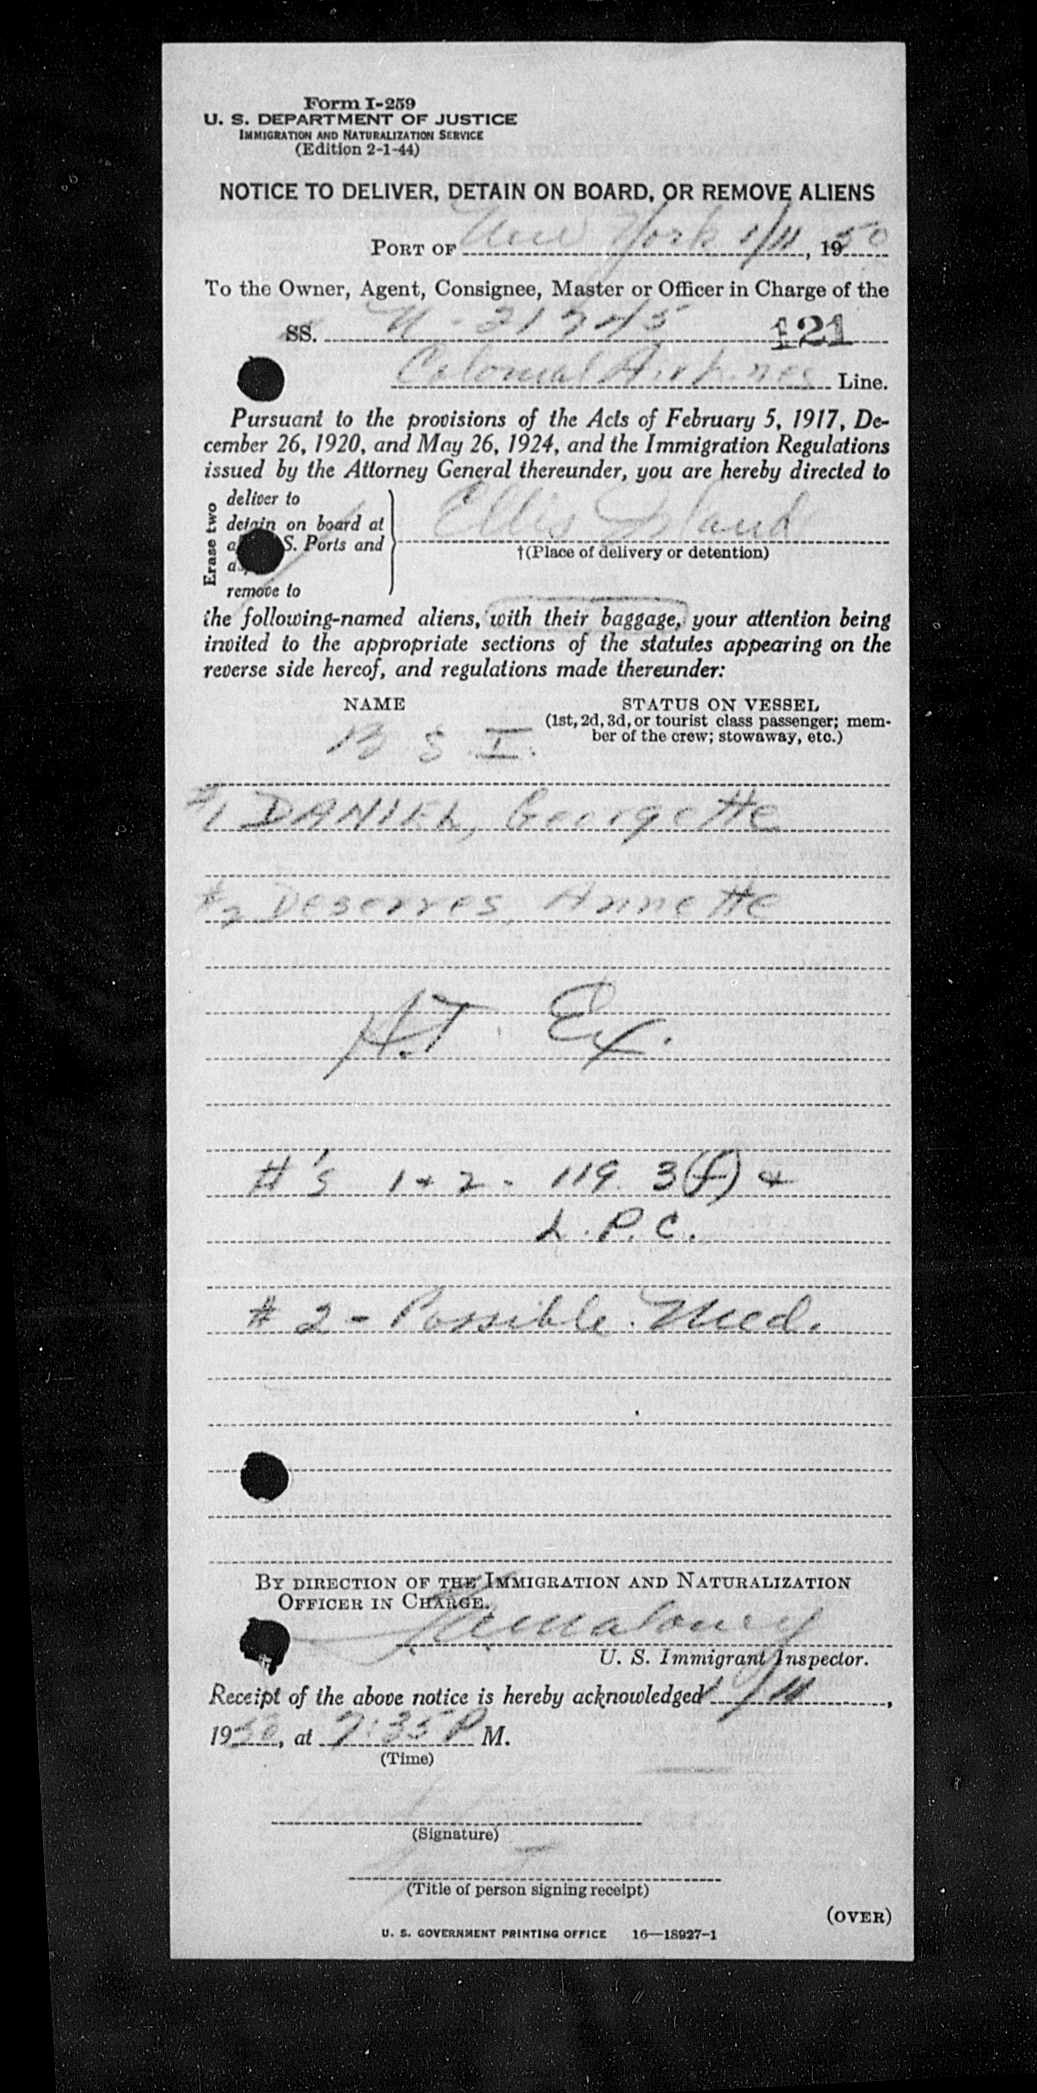 Form I-259
U. S. DEPARTMENT OF JUSTICE
IMMIGRATION AND NATURALIZATION SERVICE
(Edition 2-1-44)
NOTICE TO DELIVER, DETAIN ON BOARD, OR REMOVE ALIENS
PORT OF New York 1/11, 1950
To the Owner, Agent, Consignee, Master or Officer in Charge of the
SS. N-21745 121
Colonial Airlines Line.
Pursuant to the provisions of the Acts of February 5, 1917, De-
cember 26, 1920, and May 26, 1924, and the Immigration Regulations
issued by the Attorney General thereunder, you are hereby directed to
Erase two
deliver to
detain on board at
S. Ports and
remove to
Ellis Island
†(Place of delivery or detention)
the following-named aliens, with their baggage, your attention being
invited to the appropriate sections of the statutes appearing on the
reverse side hereof, and regulations made thereunder:
NAME STATUS ON VESSEL
(1st, 2d, 3d, or tourist class passenger; mem-
ber of the crew; stowaway, etc.)
B S I.
#1 DANIEL, Georgette
#2 Deserres, Annette
A.T. Ex.
#'s 1+2 - 119. 3(f) &
L.P.C.
#2 - Possible. Med.
BY DIRECTION OF THE IMMIGRATION AND NATURALIZATION
OFFICER IN CHARGE.
Maloney
U. S. Immigrant Inspector.
Receipt of the above notice is hereby acknowledged 1/11,
1950, at 7:35 P M.
(Time)
(Signature)
(Title of person signing receipt)
(OVER)
U. S. GOVERNMENT PRINTING OFFICE 16—18927-1